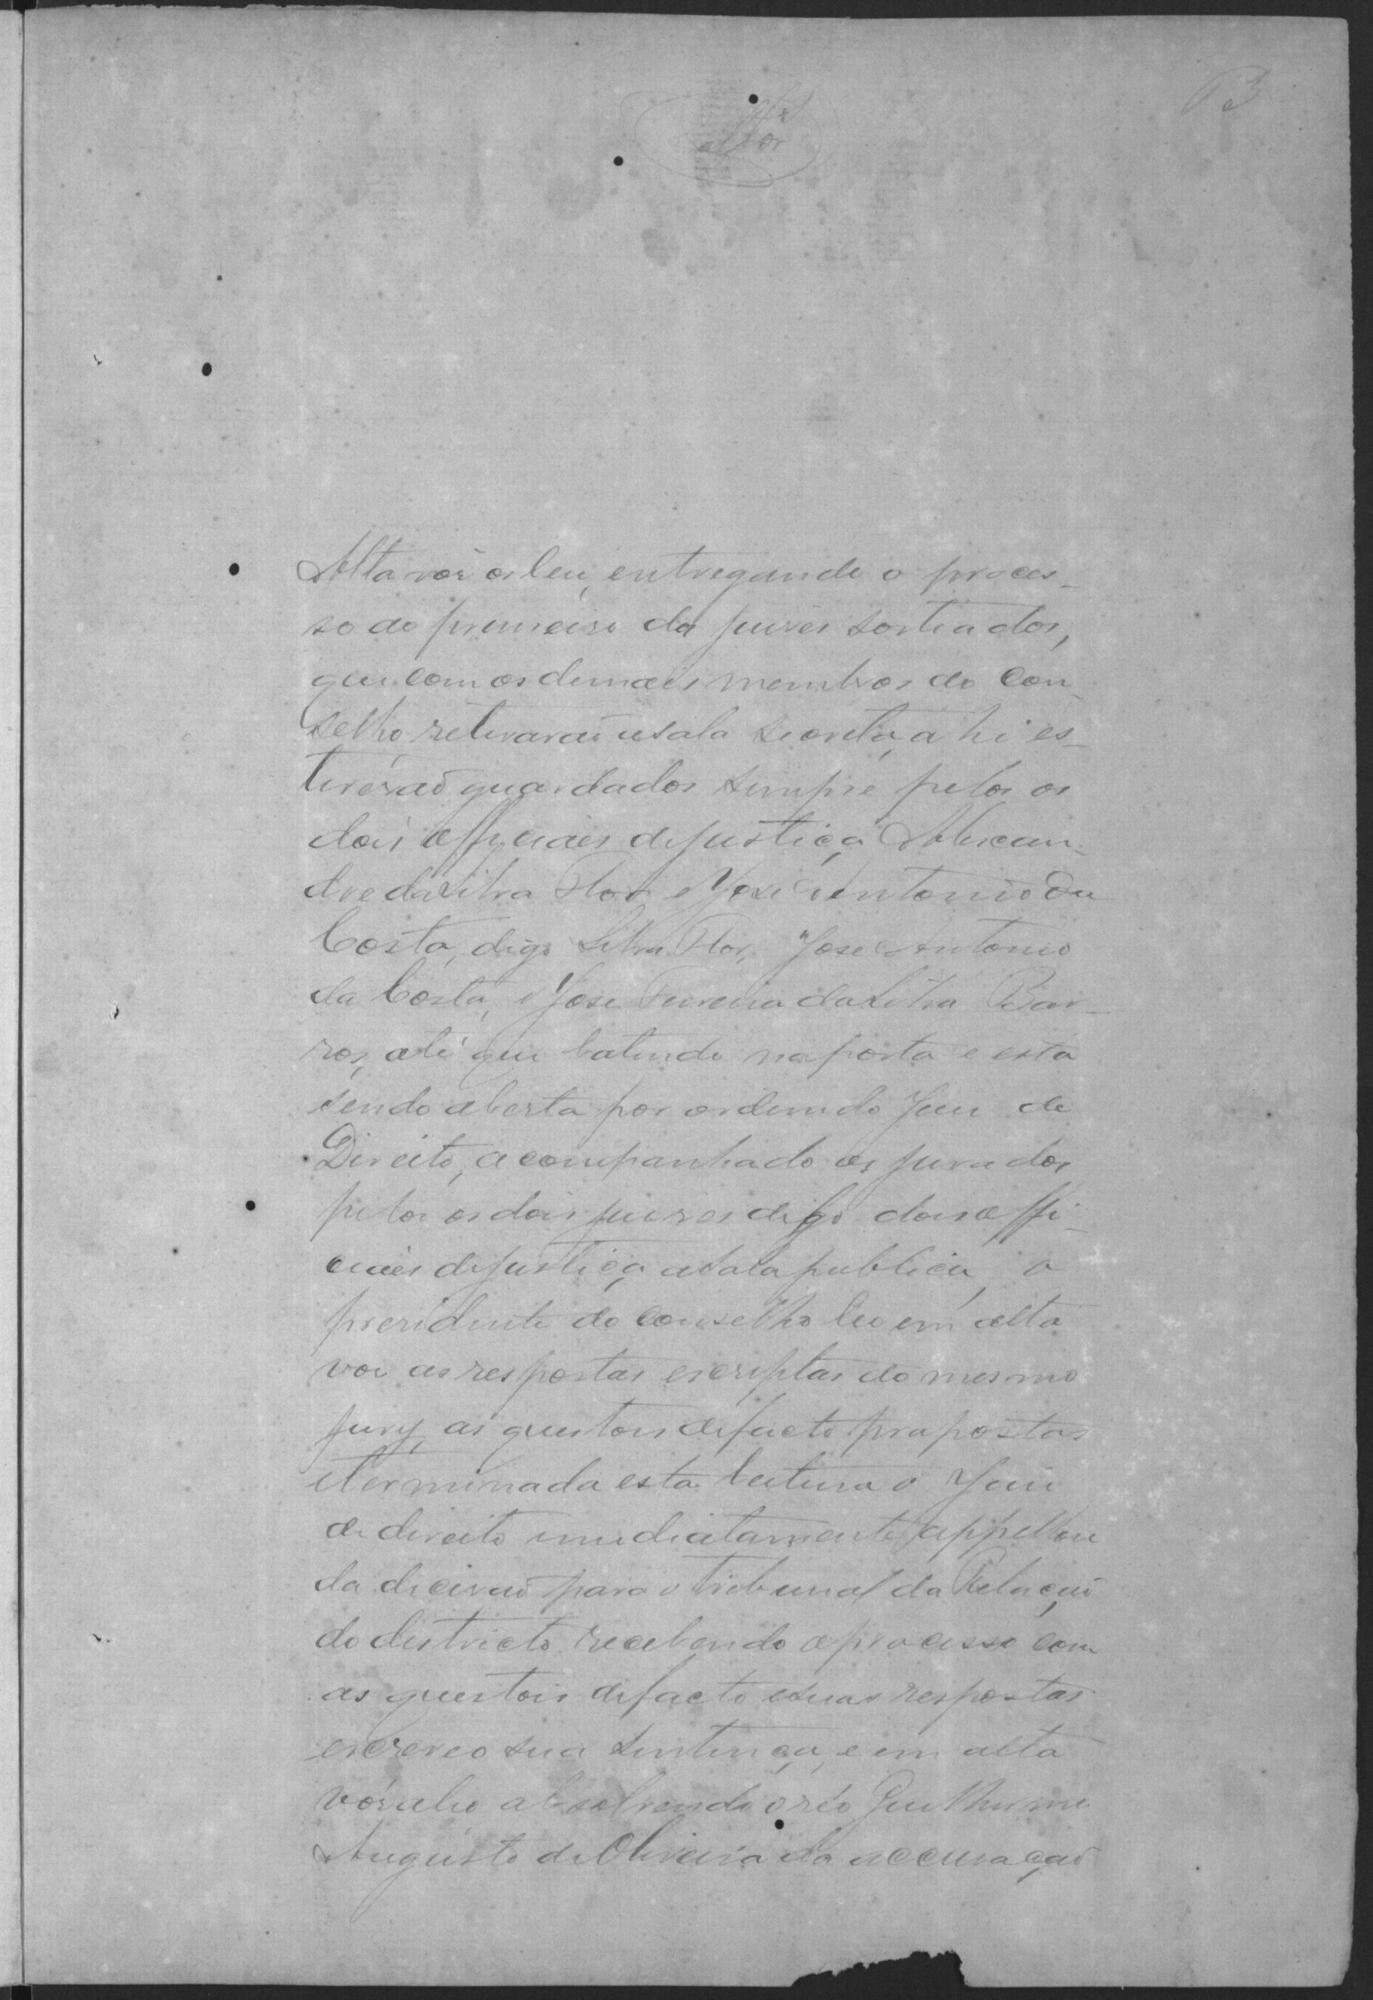 Alta voz os leu, entregando o proces-
so ao primeiro da juizes sortiados,
que com os demais membros do Con-
selho retirarão asala secreta, a hi es-
tiverão guardados sempre pelos os
dois officiaes de justiça Alexan-
dre da Silva Flor, e Jose Antonio da
Costa, digo Silva Flor, Jose Antonio
da Costa, e Jose Ferreira da Silva Bar-
ros, até que batendo na porta e esta
sendo aberta por ordem do Juiz de
Direito, acompanhado os jurados
pelos os dois juizes digo dois offi-
ciaes de justiça a sala publica, o
presidente do conselho leo em alta
voz as respostas escriptas do mesmo
jury, as questois de facto propostas
e terminada esta leitura o Juiz
de direito immediatamente appellou
da decisão para o Tribunal da Relação
do districto, recebendo o processo com
as questois de facto e suas respostas
escreveo sua sentença, e em alta
vóz a leo absolvendo o réo Guilherme
Augusto de Oliveira da accusação